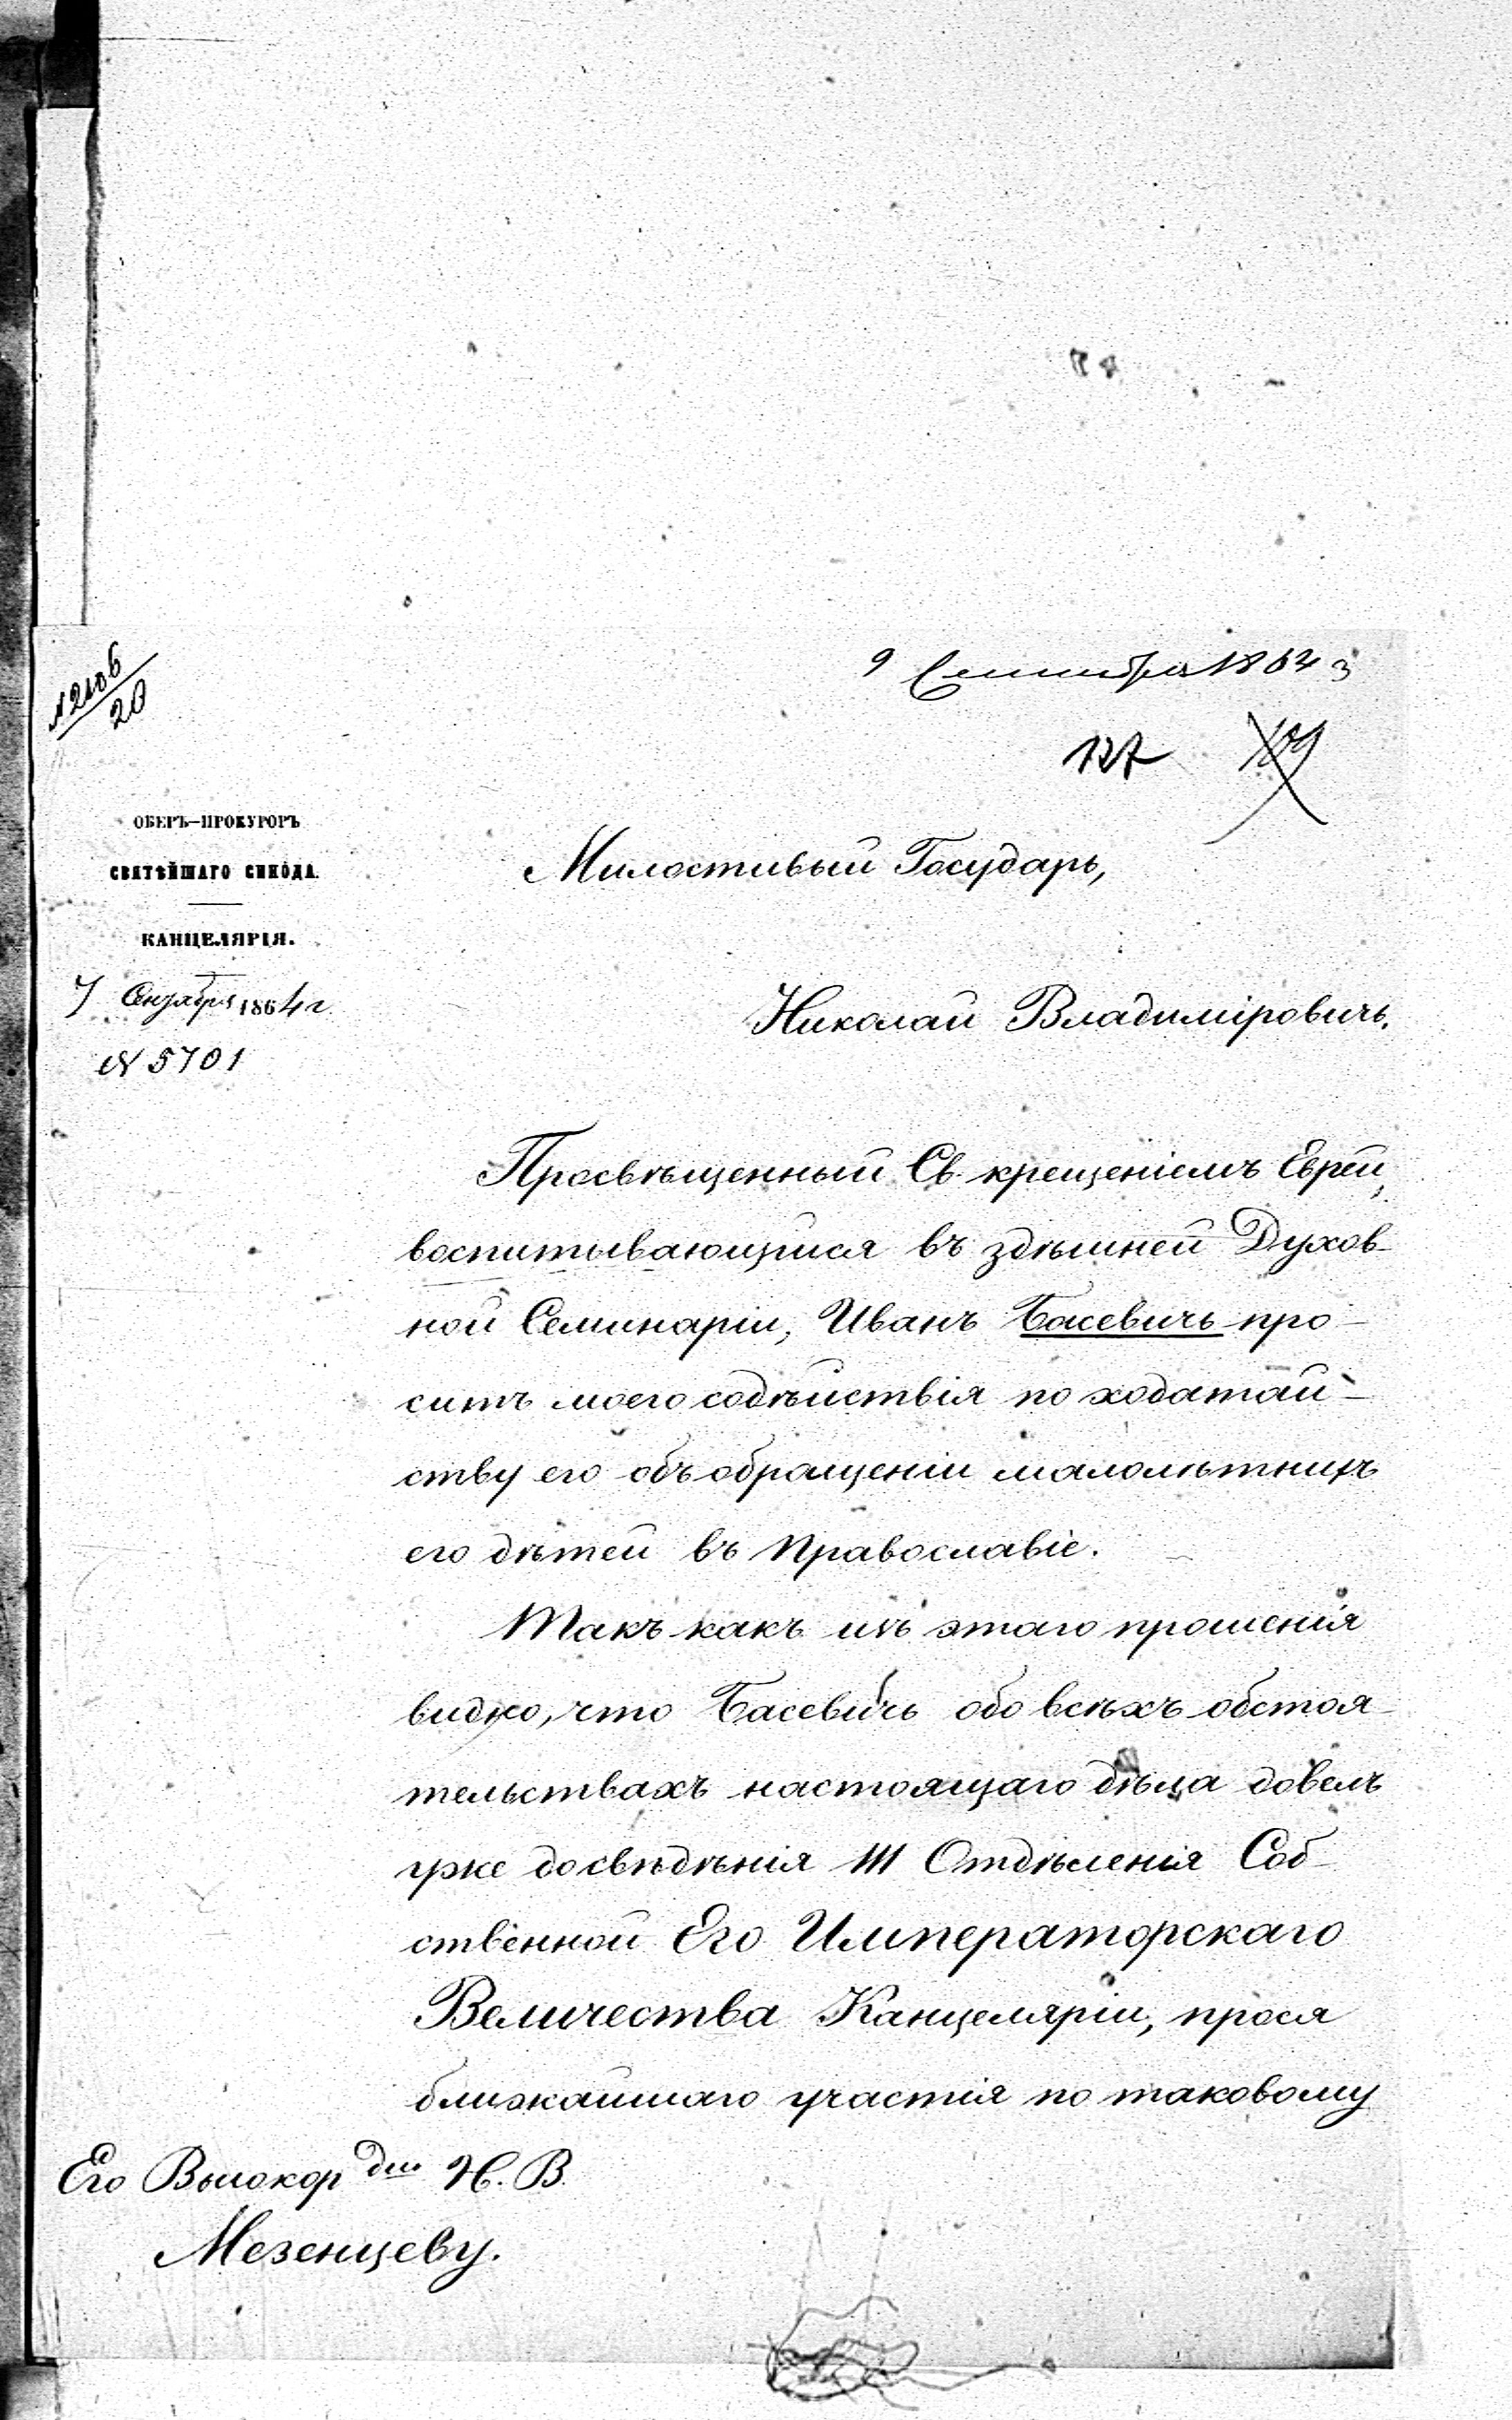 № 2106
20
9 Сентября 1864 г
127 109
ОБЕРЪ-ПРОКУРОРЪ
СВЯТѢЙШАГО СИНОДА.
КАНЦЕЛЯРІЯ.
7 Сентября 1864 г.
№ 5701
Милостивый Государь,
Николай Владиміровичъ.
Просвѣщенный Св. крещеніемъ Еврей,
воспитывающійся въ здѣшней Духов-
ной Семинаріи, Иванъ Басевичъ про-
ситъ моего содѣйствія по ходатай-
ству его объ обращеніи малолѣтнихъ
его дѣтей въ Православіе.
Такъ какъ изъ этаго прошенія
видно, что Басевичъ обо всѣхъ обстоя-
тельствахъ настоящаго дѣла довелъ
уже до свѣдѣнія III Отдѣленія Соб-
ственной Его Императорскаго
Величества Канцеляріи, прося
ближайшаго участія по таковому
Его Высокор дію Н. В.
Мезенцеву.